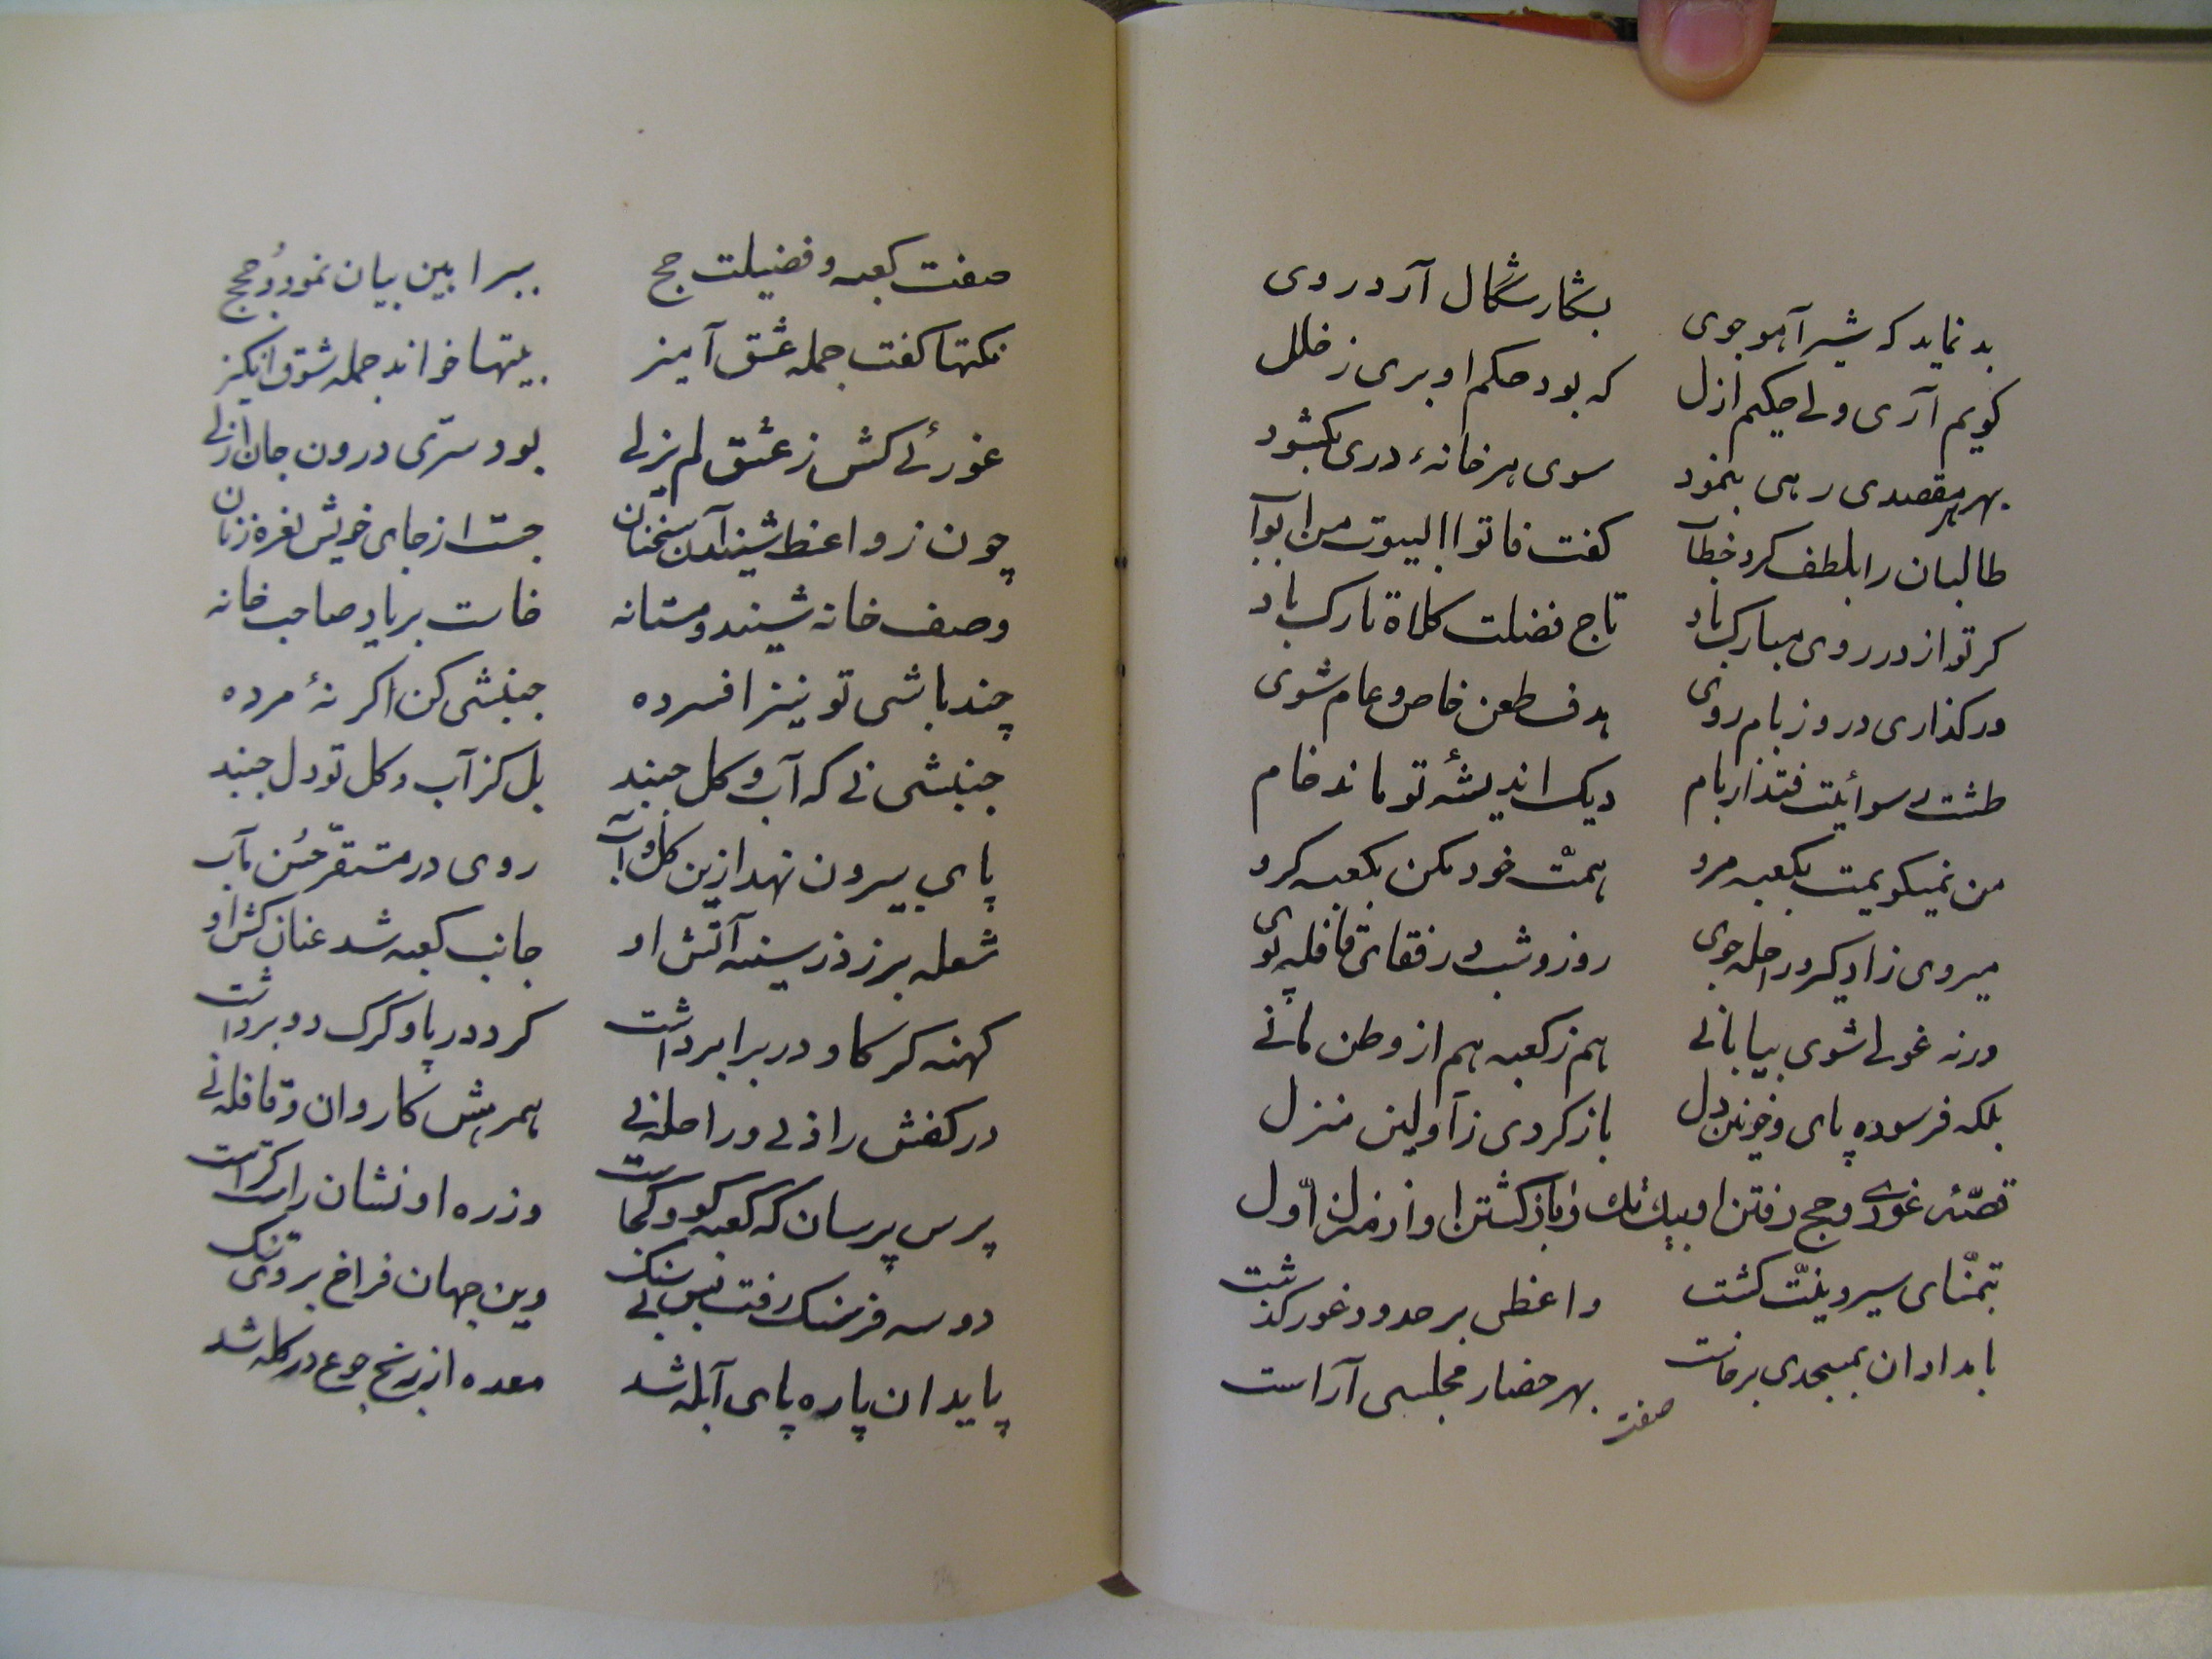 بد نماید که شیر آهو جوی بشکار شگال آرد روی
کویم آری ولی حکیم ازل که بود حکم او بری ز خلل
بهر هر مقصدی رهی بنمود سوی هر خانهٔ دری بکشود
طالبان را بلطف کرد خطاب کفت فاتوا البیوت من ابواب
کر تو از در روی مبارک باد تاج فضلت کلاه تارک باد
ورکذاری در و ز بام روی هدف طعن خاص و عام شوی
طشت سوائیت فتد از بام دیک اندیشهٔ تو ماند خام
من نمیکویمت بکعبه مرو همت خود مکن بکعبه کرو
میروی زاد کیر و راحله جوی روز و شب در رفقای قافله پوی
ورنه غولی شوی بیابانی هم ز کعبه هم از وطن مانی
بلکه فرسوده پای و خونین دل باز کردی ز اولین منزل
قصّهٔ غوری و حج رفتن او بیک تک و باز کشتن او از منزل اوّل
بتمنّای سیر و نیّت کشت واعظی بر حدود غور کذشت
بامدادان بمسجدی برخاست بهر حضار مجلسی آراست
صفت
صفت کعبه و فضیلت حج ببرابین بیان نمود و حجج
نکتها کفت جمله عشق آمیز بیتها خواند جمله شوق انکیز
غورئی کش ز عشق لم یزلی بود سرّی درون جان ازلی
چون ز واعظ شنید آن سخنان جست از جای خویش نعره زنان
وصف خانه شنید و مستانه خاست بر یاد صاحب خانه
چند باشی تو نیز افسرده جنبشی کن اکر نهٔ مرده
جنبشی نی که آب و کل جنبد بل کز آب و کل تو دل جنبد
پای بیرون نهد ازین کل و آب روی در مستقرّ حسن مآب
شعله برزد ز سینه آتش او جانب کعبه شد عنان کش او
کهنه کرکاو در برابر داشت کرد در پا و کرک دو برداشت
در کفش زاد نی و راحله نی همرهش کاروان و قافله نی
پرس پرسان که کعبه کو و کجاست وز ره او نشان راست کراست
دو سه فرسنک رفت پس بی سنک وین جهان فراخ بروی تنک
پایش از پاره پای آبله شد معده از رنج جوع در کله شد